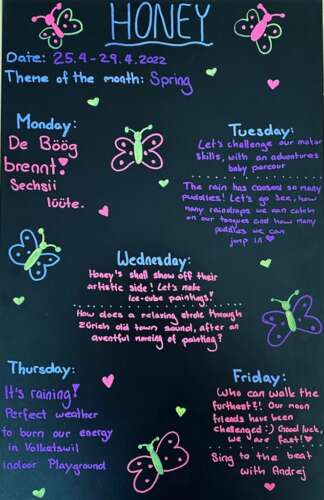 HONEY
Date: 25.4-29.4.2022
Theme of the month: Spring
Monday:
De Böög
brennt!
Sechsii
lööte.
Tuesday:
Let's challenge our motor
skills, with an adventures
baby parcour
The rain has caused so many
puddles! Let's go see, how
many raindrops we can catch
on our tongues and how many
puddles we can
jump in
Wednesday:
Honey's shall show off their
artistic side! Let's make
ice-cube paintings!
How does a relaxing strole through
Zürich old town sound, after an
aventful morning of painting?
Thursday:
It's raining!
Perfect weather
to burn our energy
in Volketswil
indoor Playground
Friday:
Who can walk the
furthest?! Our moon
friends have been
challenged :) Good luck,
we are fast!
Sing to the beat
with Andrej